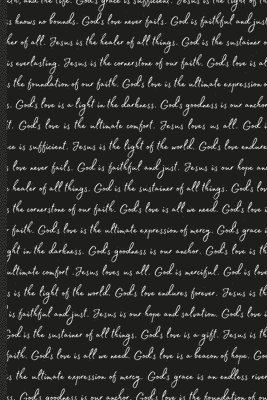 and the life. God's grace is sufficient. Jesus is the light of
knows no bounds. God's love never fails. God is faithful and just
of all. Jesus is the healer of all things. God is the sustainer o
is everlasting. Jesus is the cornerstone of our faith. God's love is al
the foundation of our faith. God's love is the ultimate expression o
s. God's love is a light in the darkness. God's goodness is our anchor
t. God's love is the ultimate comfort. Jesus loves us all. God i
ce is sufficient. Jesus is the light of the world. God's love endure
love never fails. God is faithful and just. Jesus is our hope an
healer of all things. God is the sustainer of all things. God's lov
the cornerstone of our faith. God's love is all we need. God's love i
faith. God's love is the ultimate expression of mercy. God's grace i
ght in the darkness. God's goodness is our anchor. God's love is th
ultimate comfort. Jesus loves us all. God is merciful. God's love is
s is the light of the world. God's love endures forever. Jesus is th
is faithful and just. Jesus is our hope and salvation. God's love i
God is the sustainer of all things. God's love is a gift. Jesus is th
faith. God's love is all we need. God's love is a beacon of hope. Go
is the ultimate expression of mercy. God's grace is an endless river
s. God's goodness is our anchor. God's love is the foundation of